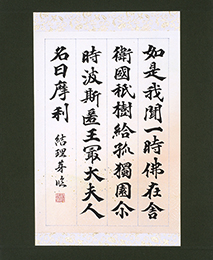 如是我聞一時佛在舎
衛國祇樹給孤獨園尒
時波斯匿王冣大夫人
名曰摩利
結理芽臨